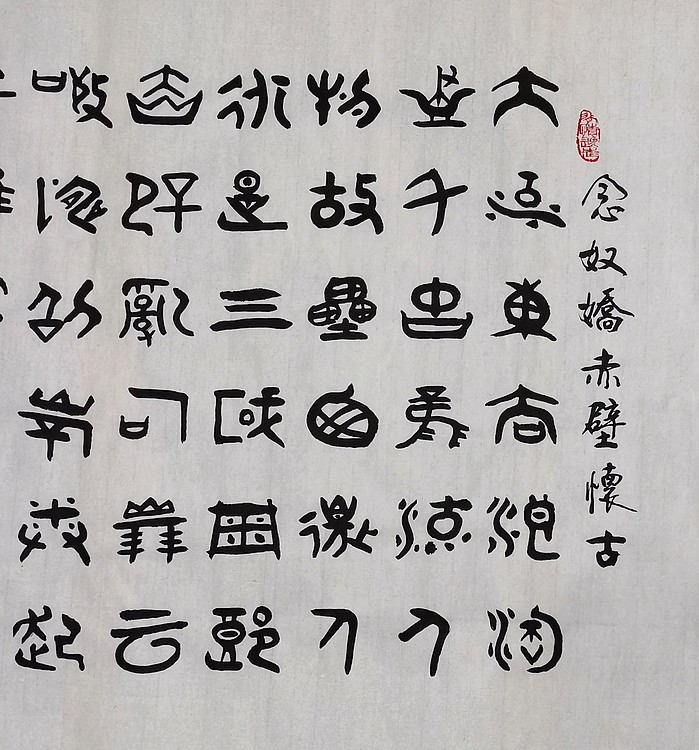 念奴嬌赤壁懷古
大江東去浪淘
盡千古風流人
物故壘西邊人
道是三國周郎
赤壁亂石崩云
驚濤裂岸捲起